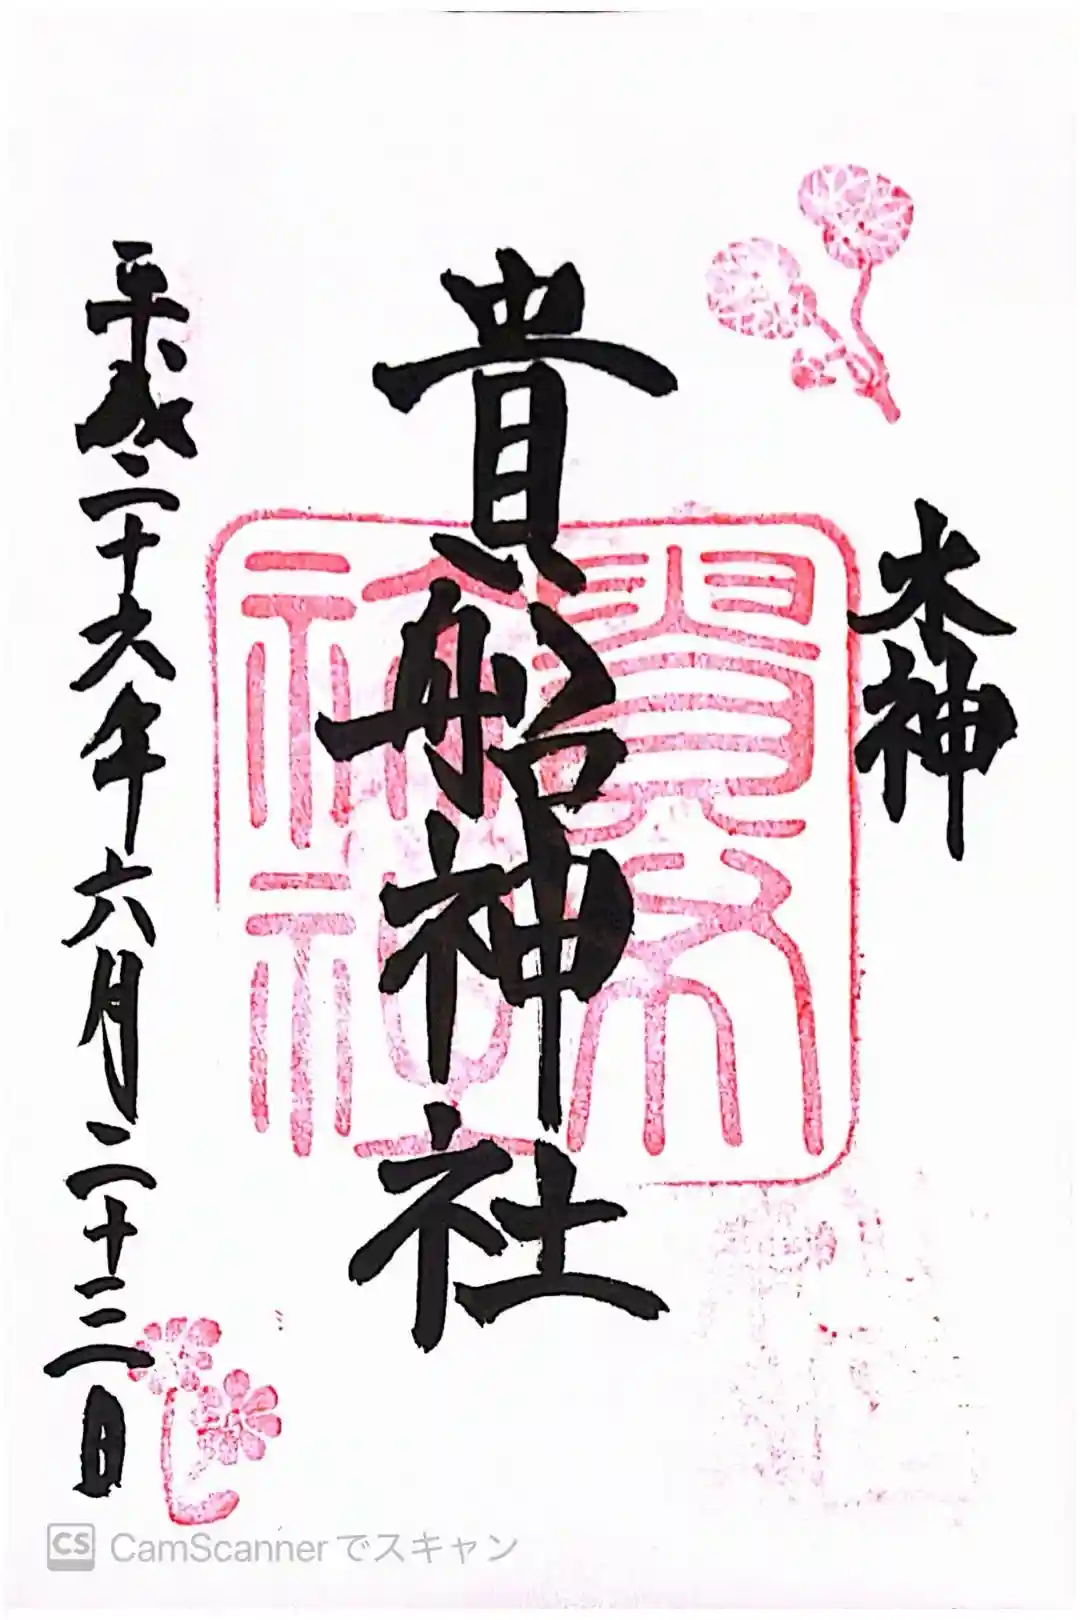 水神
貴船神社
平成二十六年六月二十三日
CS CamScannerでスキャン